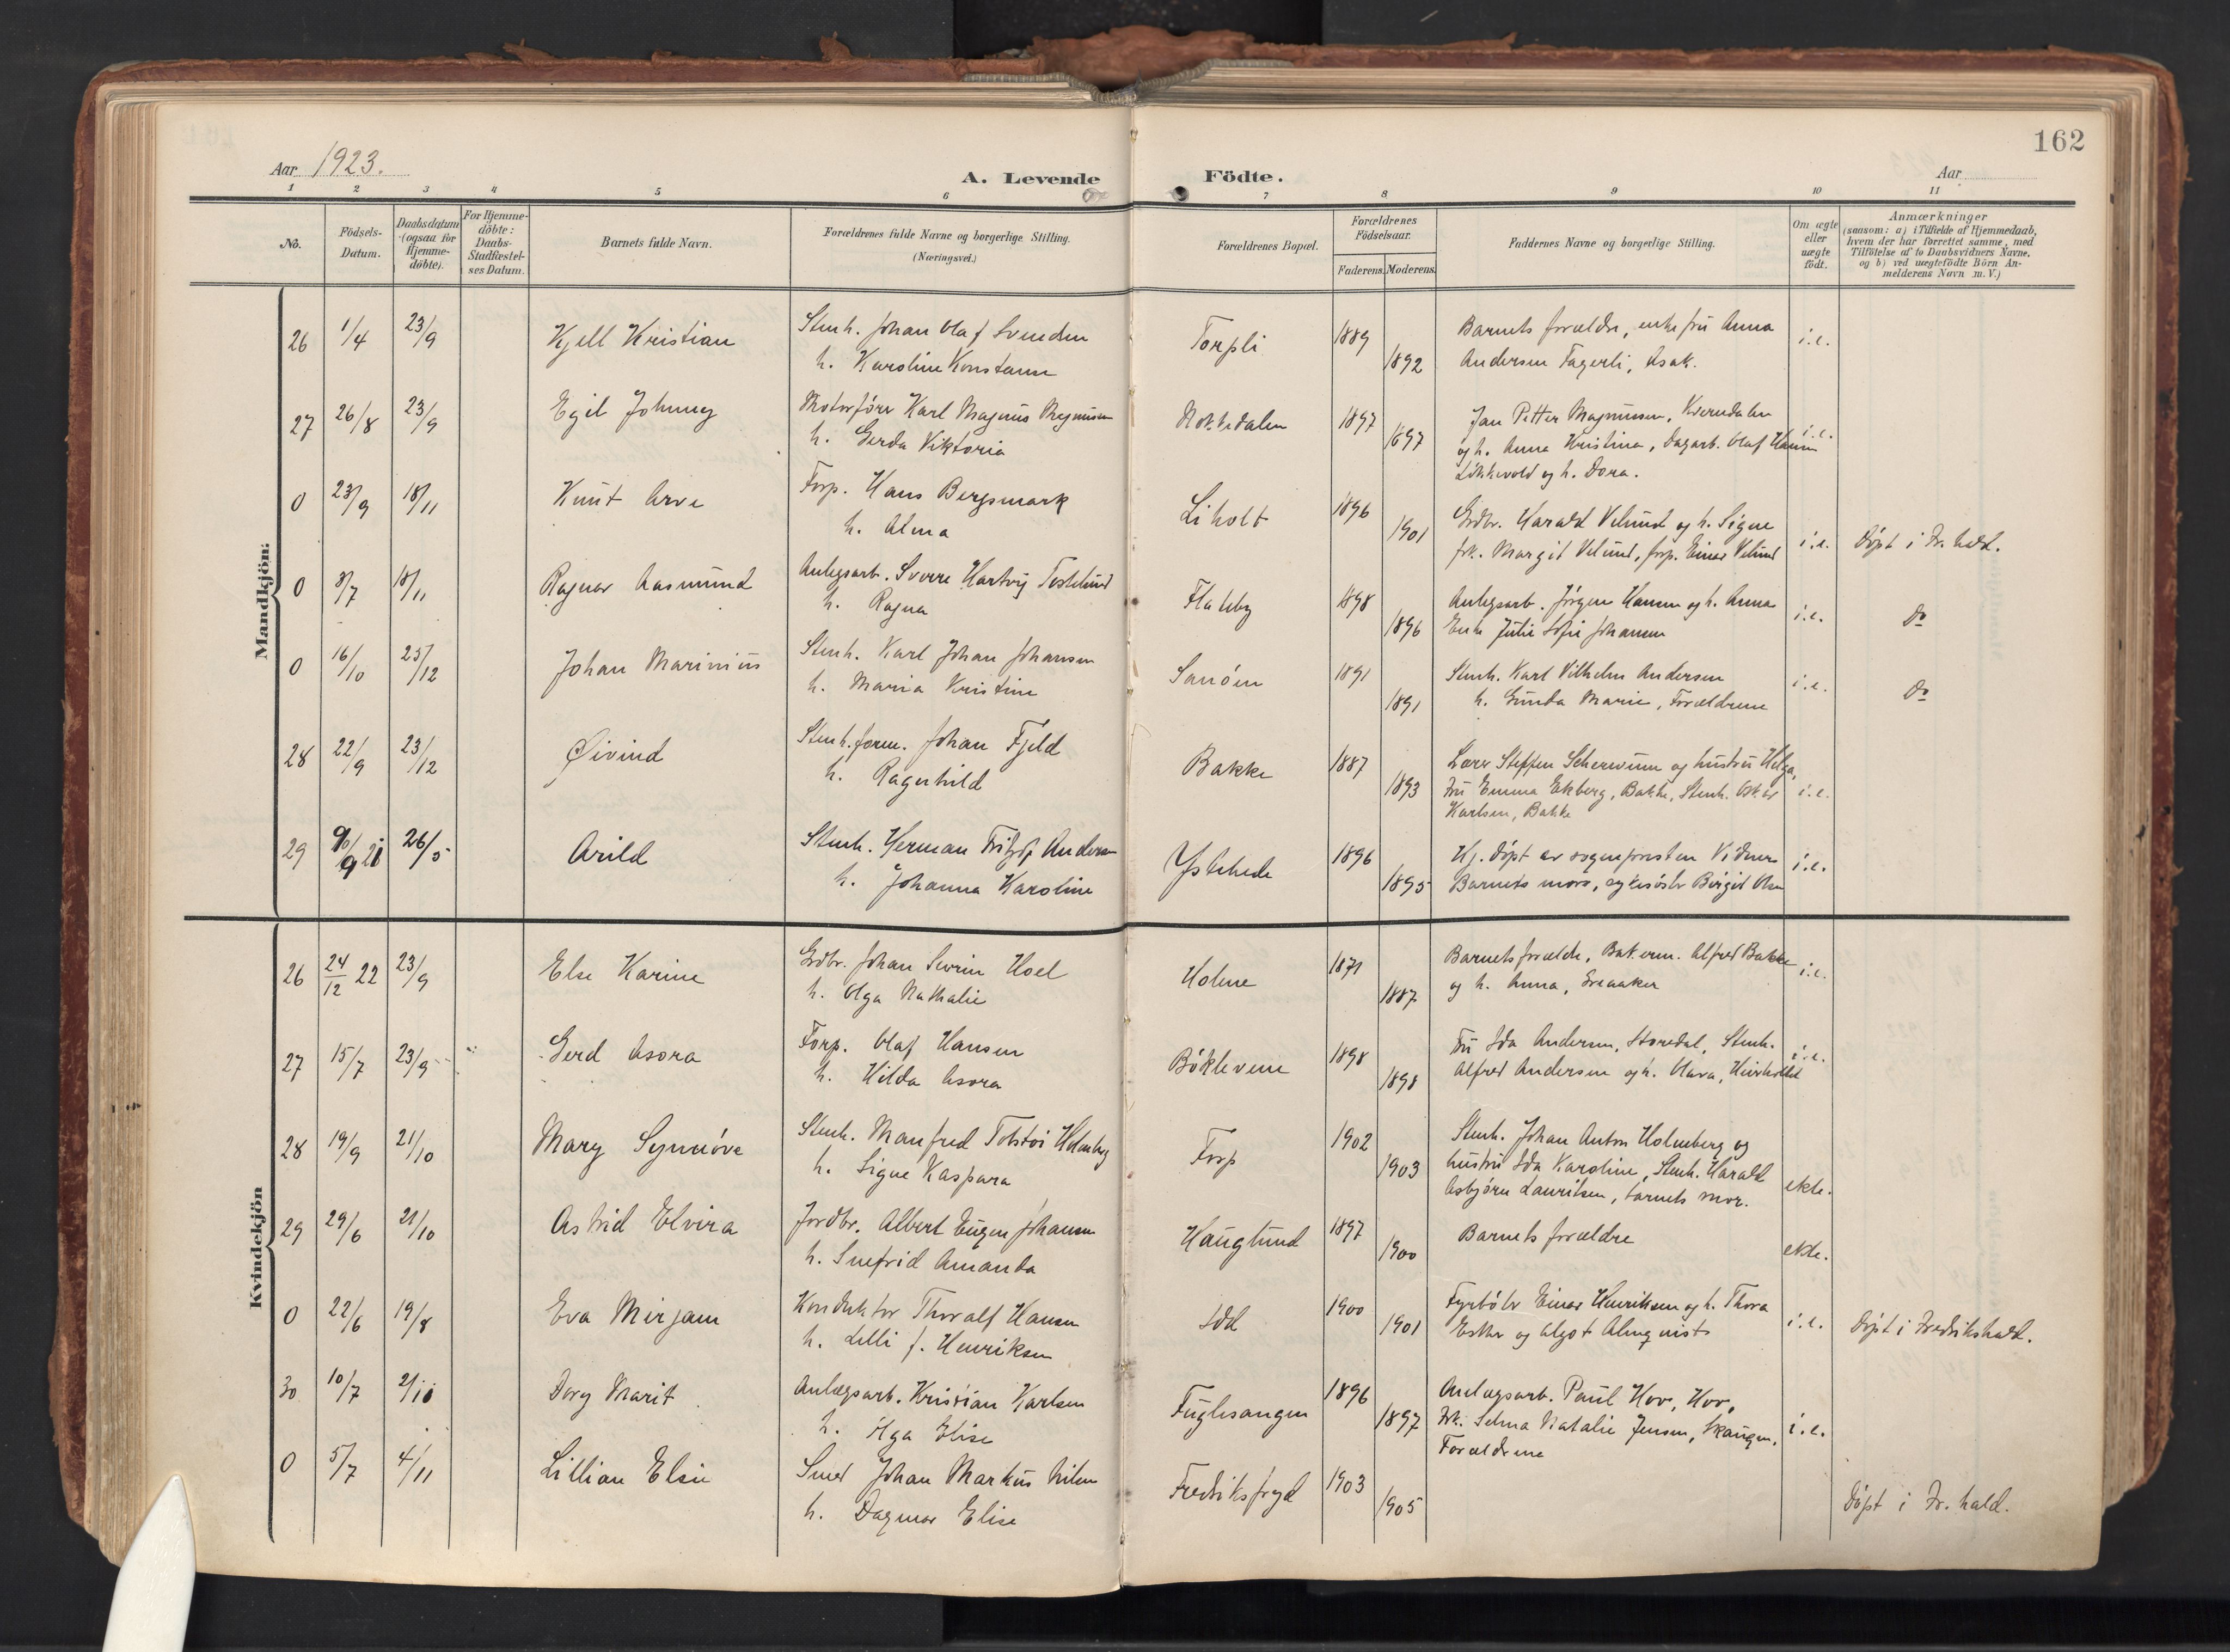 162
Aar 1923.
A. Levende
Födte.
Aar
1 2 3 4 5 6 7 8 9 10 11
No.
Födsels-Datum.
Daabsdatum (ogsaa for Hjemme-döbte).
For Hjemme-döbte: Daabs-Stadfæstel-ses Datum.
Barnets fulde Navn.
Forældrenes fulde Navne og borgerlige Stilling.
(Næringsvei.)
Forældrenes Bopæl.
Forældrenes Födselsaar.
Faderens. Moderens.
Faddernes Navne og borgerlige Stilling.
Om ægte eller uægte födt.
Anmærkninger
(saasom: a) i Tilfælde af Hjemmedaab,
hvem der har forrettet samme, med
Tilföielse af to Daabsvidners Navne.
og b) ved uægtefödte Börn An-
melderens Navn m. V.)
Mandkjön:
26 1/4 23/9 Kjell Kristian Stenh. Johan Olaf Svendsen Torpli 1889 Barnets forældre, enkefru Anna i.e.
h. Karoline Konstanse 1892 Andersen Fagerli, Asak.
27 26/8 23/9 Egil Johnny Motorfører Karl Magnus Magnusen 1897 Jan Petter Magnussen, Kverndalen i.e.
h. Gerda Viktoria 1897 og h. Anna Kristina, Dagarb. Olaf Hansen
Løkkevold og h. Dora.
0 23/9 18/11 Knut Arve Forp. Hans Bergsmark Liholt 1896 Grdbr. Harald Velund og h. Signe
h. Alma 1901 frk. Margit Velund, forp. Einar Velund i.e. Døpt i Fr.hald.
0 8/7 18/11 Ragnar Aasmund Anlegsarb. Sverre Hartvig Flakby 1898 Anlegsarb. Jørgen Hansen og h. Anna i.e. Do
h. Ragna 1896 Enke Julie Sofie Johansen
0 16/10 25/12 Johan Marinius Stenh. Karl Johan Johansen Sanøen 1891 Stenh. Karl Vilhelm Andersen i.e. Do
h. Maria Kristine 1891 h. Gunda Marie, Forældrene
28 22/9 23/12 Øivind Stenh.form. Johan Fjeld Bakke 1887 Lærer Steffen Scherwum og hustru Helga,
h. Ragnhild 1893 Fru Emma Ekberg, Bakke, Stenh. Oskar i.e.
Karlsen, Bakke
29 26/5 Arild Stenh. Herman Fritjof Andersen Ystehede 1896 Hj.døpt av sognepresten Vidner i.e.
h. Johanna Karoline 1895 Barnets mors, sykesøster Birgit
Kvindekjön
26 24/12 22 23/9 Else Karine Grdbr. Johan Severin Hoel Holene 1871 Barnets forældre, Bakerm. Alfred Bakke i.e.
h. Olga Nathalie 1887 og h. Anna,
27 15/7 23/9 Gerd Asora Forp. Olaf Hansen Bøklevene 1898 Fru Ida Andersen, Storedal, Stenh. i.e.
h. Hilda Asora 1898 Alfred Andersen og h. Olava,
28 19/9 21/10 Mary Synnøve Stenh. Manfred Tolstoi Holmberg Torp 1902 Stenh. Johan Anton Holmberg og
h. Signe Kaspara 1903 hustru Ida Karoline, Stenh. Harald
Asbjørn Lauritsen, barnets mor. ekte.
29 29/6 21/10 Astrid Elvira Jordbr. Albert Eugen Johansen Hauglund 1897 Barnets forældre
h. Snefrid Amanda 1900 ekte.
0 22/6 19/8 Eva Mirjam Konduktør Thoralf Hansen Idd 1900 Fyrbøter Einar Henriksen og h. Thora
h. Lilli f. Henriksen 1901 Ester og Algot Almqvist i.e. Døpt i Fredrikshald.
30 10/7 21/10 Dory Marit Anlægsarb. Kristian Karlsen Fuglesangen 1896 Anlægsarb. Paul Hov, Hov,
h. Olga Elise 1897 Frk. Selma Natalie Jensen, Skaugen, i.e.
Forældrene
0 5/7 4/11 Lillian Elsie Smed Johan Markus Nilsen Fredriksfryd 1903
h. Dagmar Elise 1905 Døpt i Fr.hald.